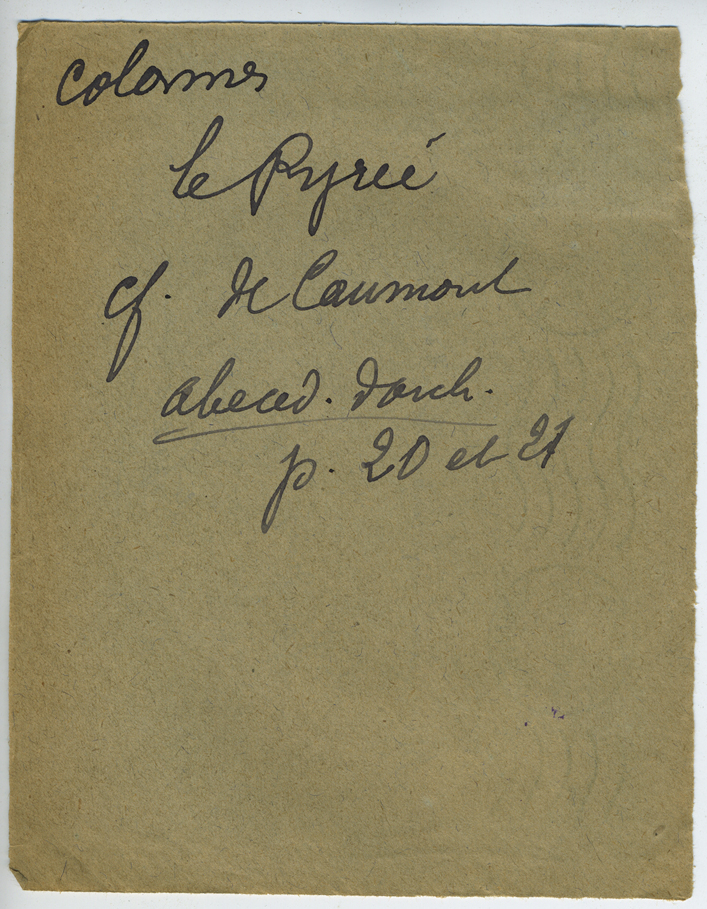 colonnes
le Pyrée
cf. de Caumont
abeced. d'arch.
p. 20 et 21